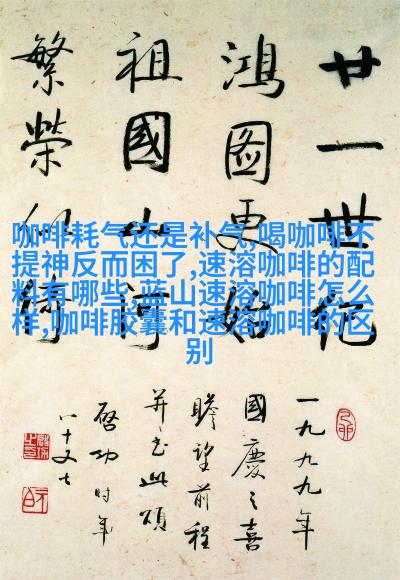 廿一世紀
鴻圖更始
祖國山河
繁榮似
咖啡耗气还是补气,喝咖啡不
提神反而困了,速溶咖啡的配
料有哪些,蓝山速溶咖啡怎么
样,咖啡胶囊和速溶咖啡的区
别
一九九九年
國慶之喜
瞻望前程
并书此頌
啓功时年
八十又七